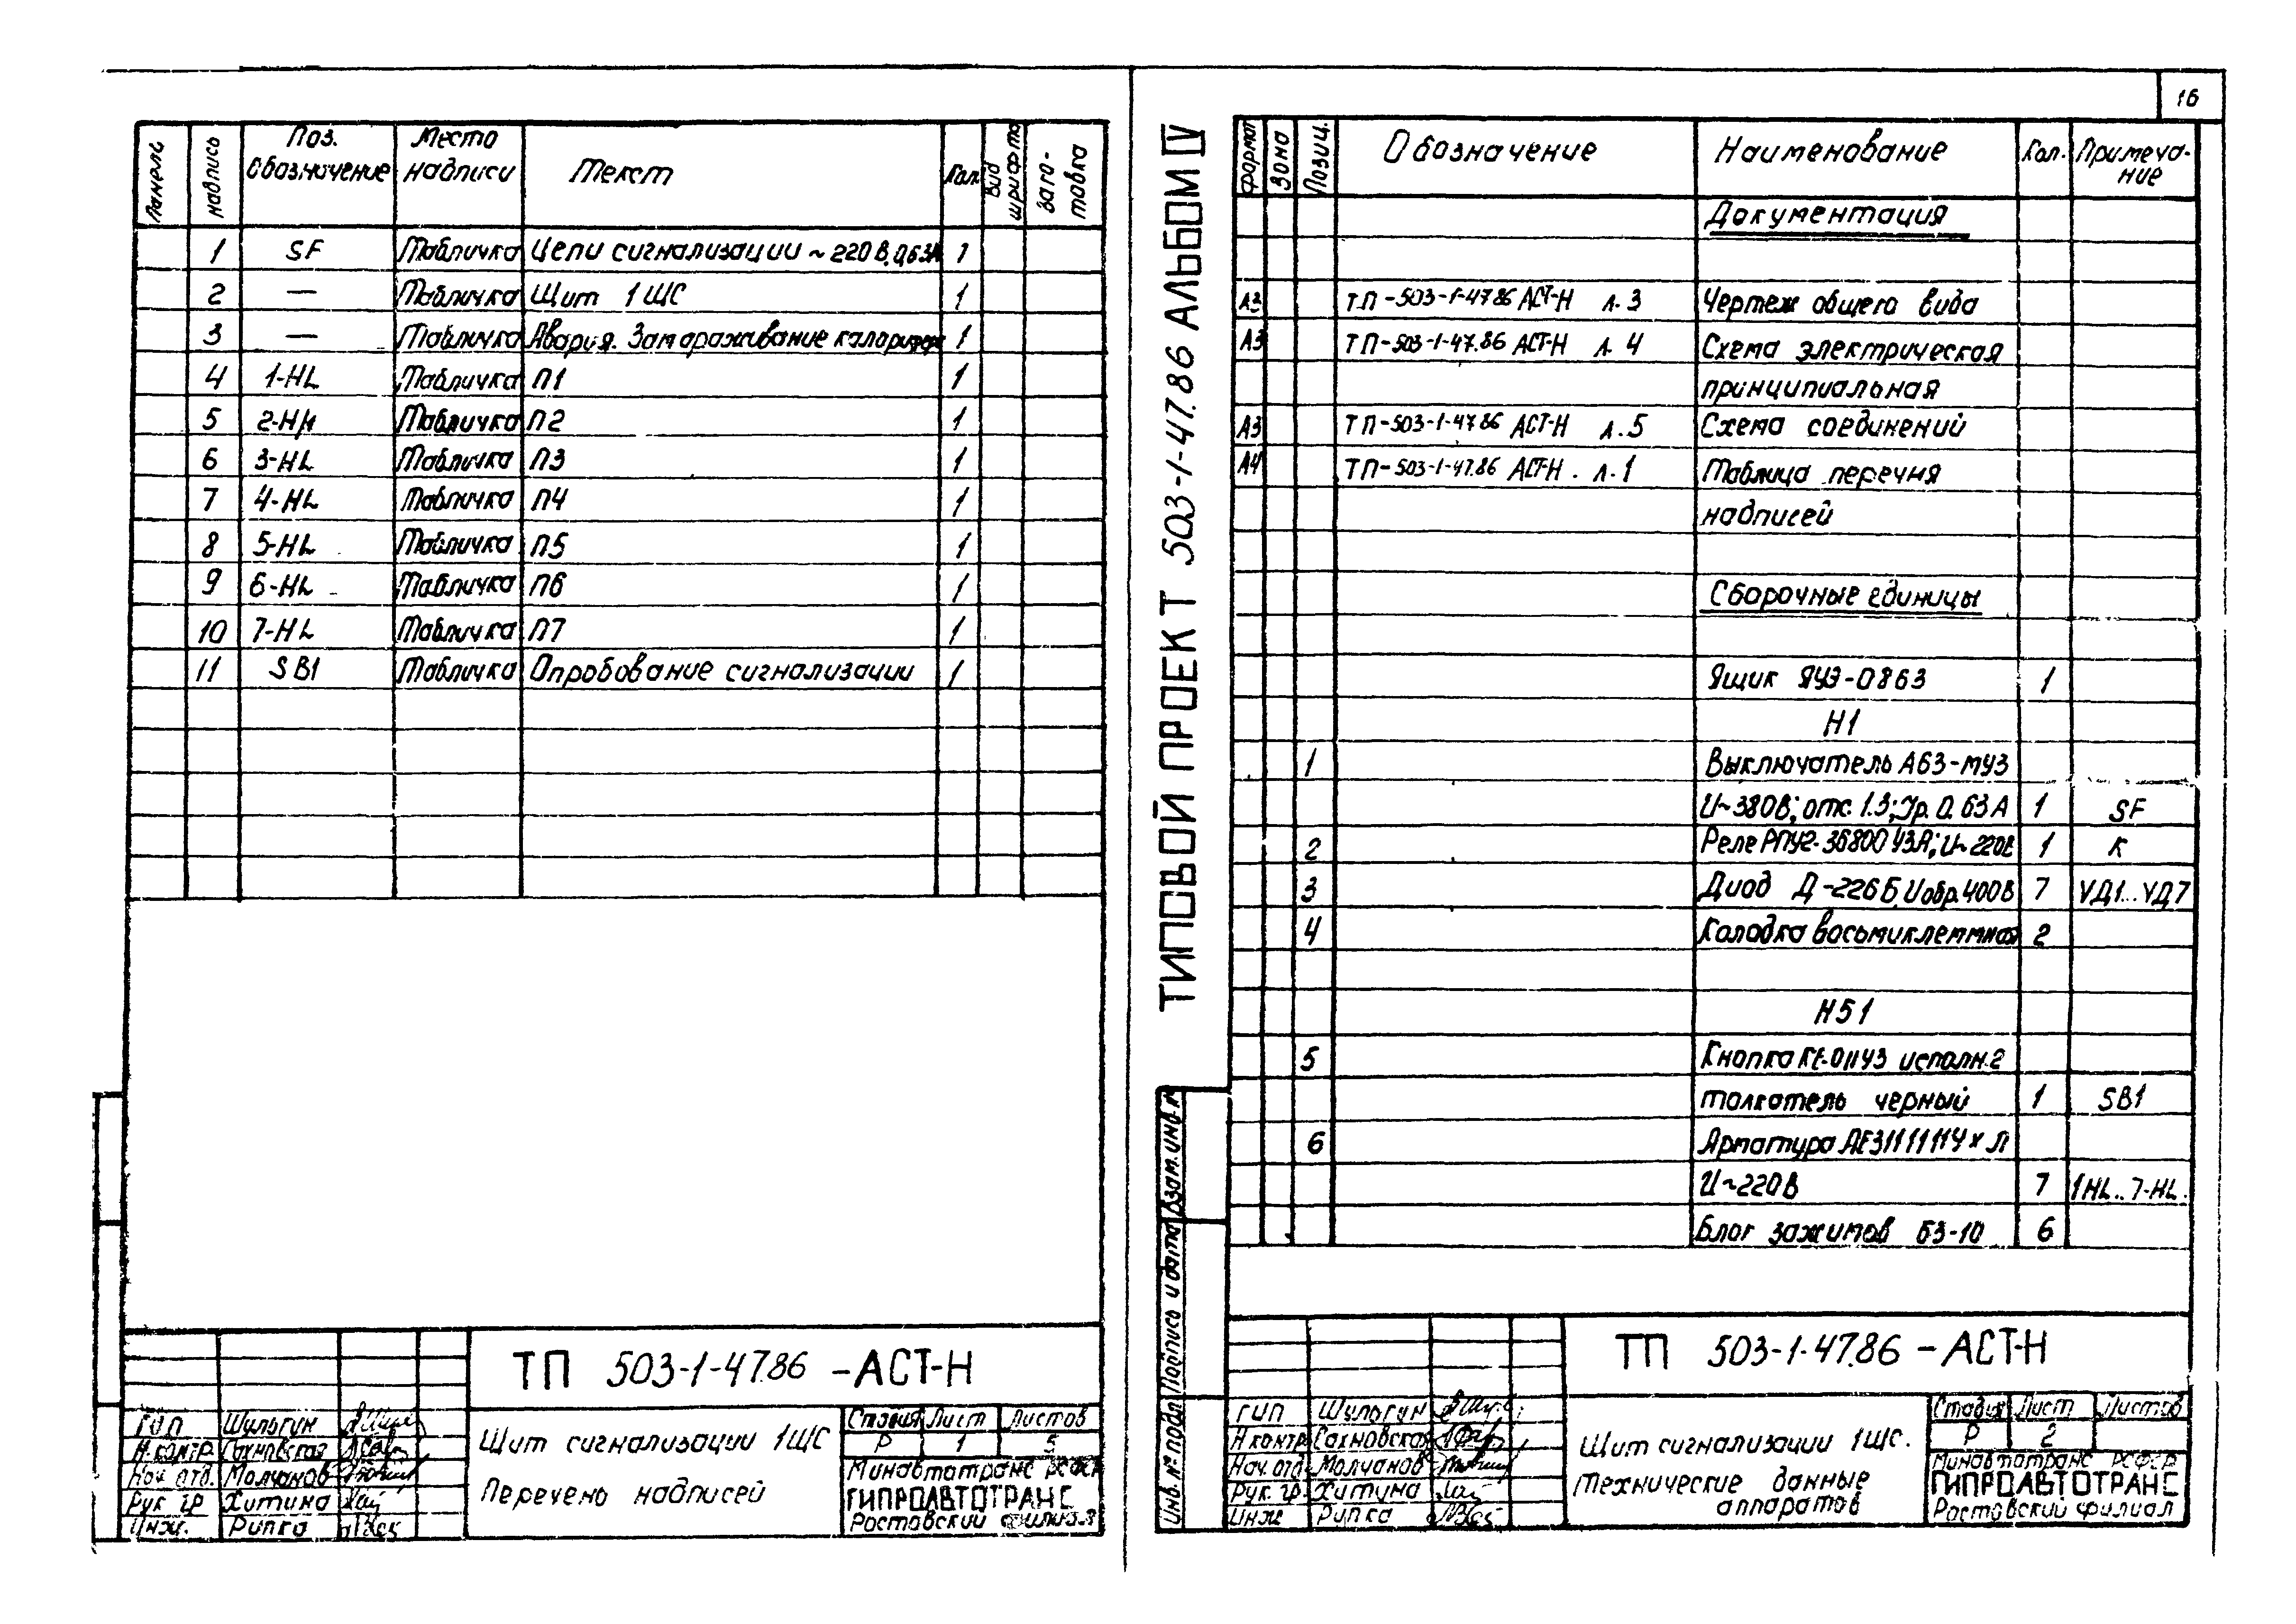 16
Панель надпись Поз. обозначение Место надписи Текст Кол. Вид шрифта Заготовка
1 SF Табличка Цепи сигнализации ~220В, 0,63А 1
2 — Табличка Щит 1ЩС 1
3 — Табличка Авария. Замораживание калорифера 1
4 1-HL Табличка П1 1
5 2-HL Табличка П2 1
6 3-HL Табличка П3 1
7 4-HL Табличка П4 1
8 5-HL Табличка П5 1
9 6-HL Табличка П6 1
10 7-HL Табличка П7 1
11 SB1 Табличка Опробование сигнализации 1
ТП 503-1-47.86 -АСТ-Н
ГИП Шульгун
Н.контр. Сахновская
Нач. отд. Молчанов
Рук гр Хитина
Инж. Рипка
Щит сигнализации 1ЩС
Перечень надписей
Стадия Лист Листов
Р 1 5
Минавтотранс РСФСР
ГИПРОАВТОТРАНС
Ростовский филиал
ТИПОВОЙ ПРОЕКТ 503-1-47.86 АЛЬБОМ IV
Формат Зона Позиц. Обозначение Наименование Кол. Примеча-
ние
Документация
А3 ТП-503-1-47.86 АСТ-Н л.3 Чертеж общего вида
А3 ТП-503-1-47.86 АСТ-Н л.4 Схема электрическая
принципиальная
А3 ТП-503-1-47.86 АСТ-Н л.5 Схема соединений
А4 ТП-503-1-47.86 АСТ-Н. л.1 Таблица перечня
надписей
Сборочные единицы
Ящик ЯУЭ-0863 1
Н1
1 Выключатель А63-МУ3
U~380В; отс. 1.3; Jр. 0.63А 1 SF
2 Реле РПУ2-36800У3А; U~220В 1 К
3 Диод Д-226Б, Uобр.400В 7 VД1...VД7
4 Колодка восьмиклеммная 2
Н51
5 Кнопка КЕ-011У3 исполн.2
толкатель черный 1 SB1
6 Арматура АЕ3111111УхЛ
U~220В 7 1HL...7-HL.
Блок зажимов БЗ-10 6
Взам.инв.№
Подпись и дата
Инв.№ подл.
ТП 503-1-47.86 -АСТ-Н
ГИП Шульгун
Н контр Сахновская
Нач. отд Молчанов
Рук. гр. Хитина
Инж Рипка
Щит сигнализации 1ЩС.
Технические данные
аппаратов
Стадия Лист Листов
Р 2
Минавтотранс РСФСР
ГИПРОАВТОТРАНС
Ростовский филиал